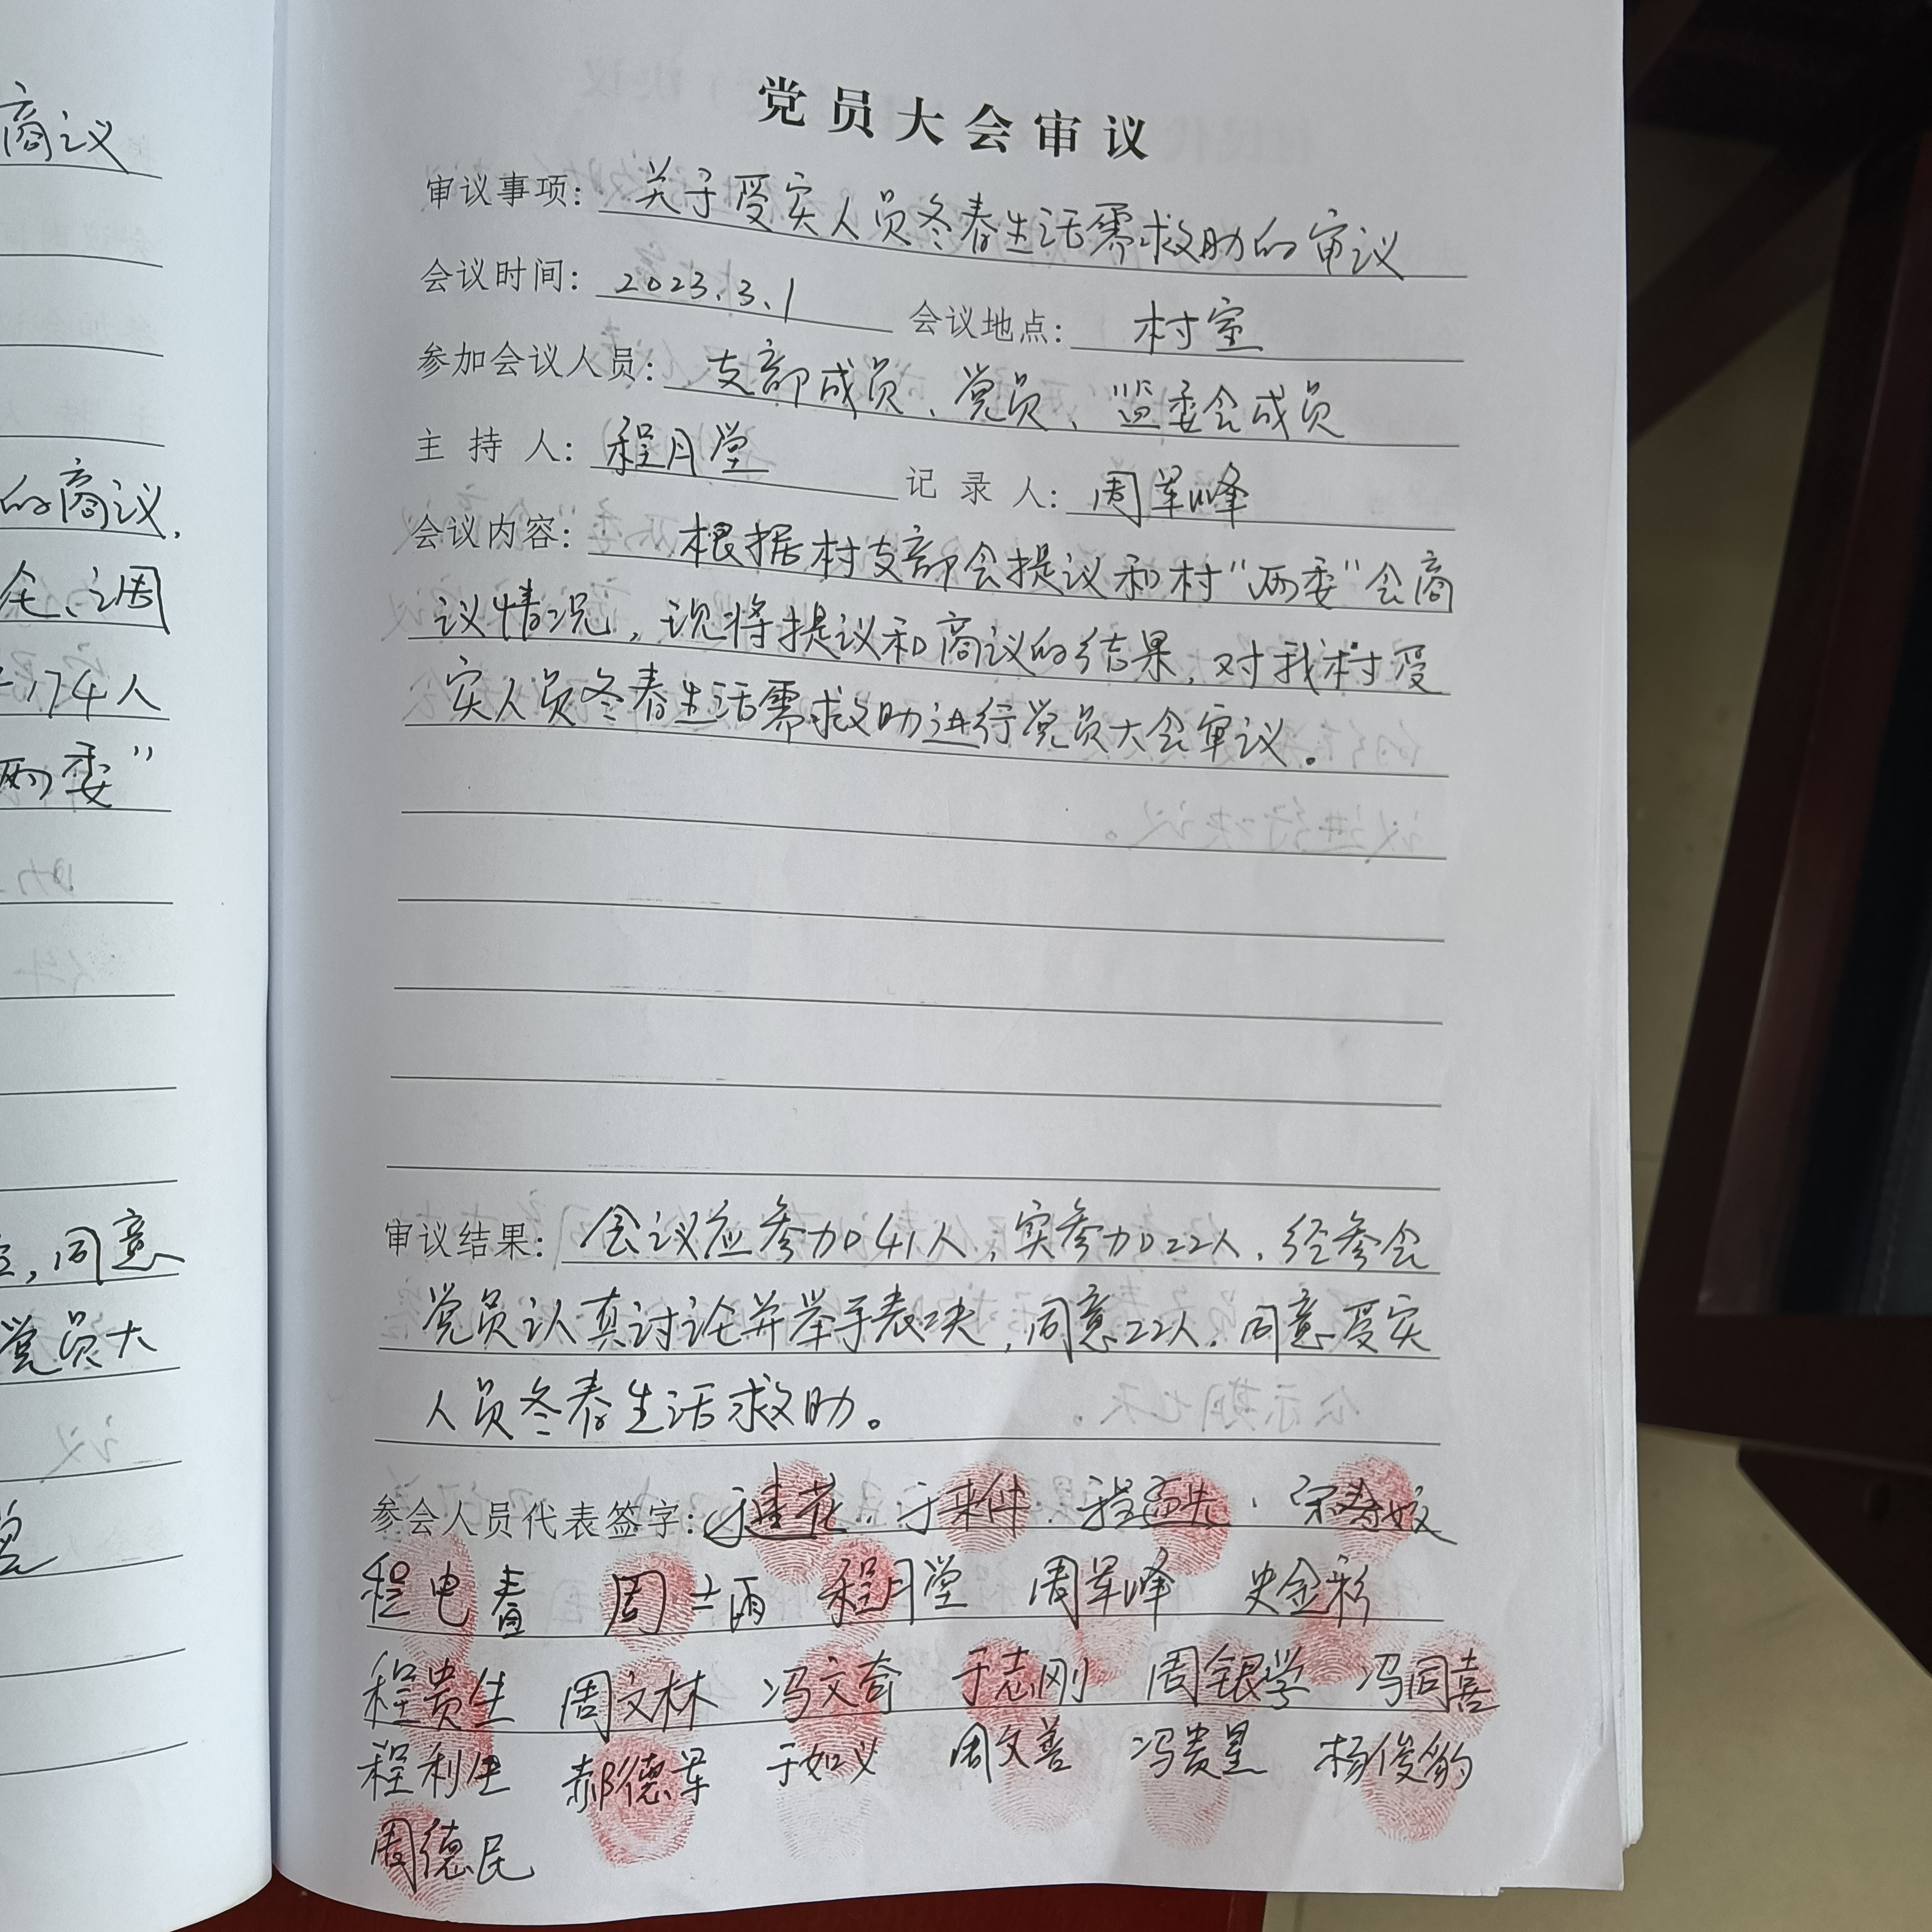 商议
的商议,
174人
两委"
同意
党员大
党员大会审议
审议事项: 关于受实人员冬春生活需救助的审议
会议时间: 2023.3.1 会议地点: 村室
参加会议人员: 支部成员、党员、监委会成员
主持人: 程月堂 记录人: 周军峰
会议内容: 根据村支部会提议和村"两委"会商
议情况,现将提议和商议的结果,对我村受
实人员冬春生活需救助进行党员大会审议。
审议结果: 会议应参加41人,实参加22人,经参会
党员认真讨论并举手表决,同意22人,同意受实
人员冬春生活救助。
参会人员代表签字: 于桂花 于来件
程电春 周 程月堂 周军峰 史金彩
程贵生 周文林 冯文奇 于志刚 周银学 冯同喜
程利生 郝德军 于如义 周文善 冯贵星 杨俊豹
周德民